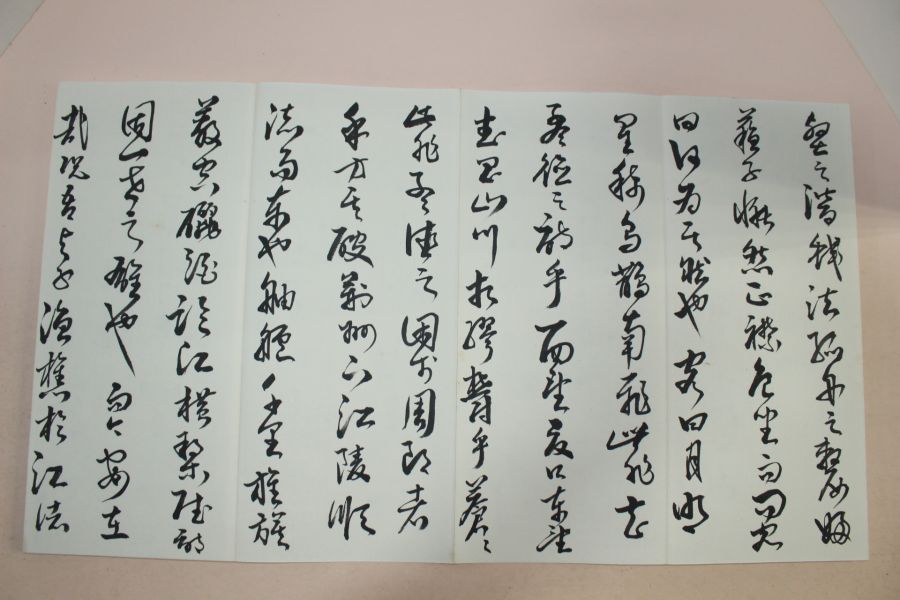 壑之潛蛟泣孤舟之嫠婦
蘇子愀然正襟危坐而問客
曰何為其然也客曰月明
星稀烏鵲南飛此非曹
孟德之詩乎西望夏口東望
武昌山川相繆鬱乎蒼〻
此非孟德之困於周郎者
乎方其破荊州下江陵順
流而東也舳艫千里旌旗
蔽空釃酒臨江橫槊賦詩
固一世之雄也而今安在
哉況吾與子漁樵於江渚